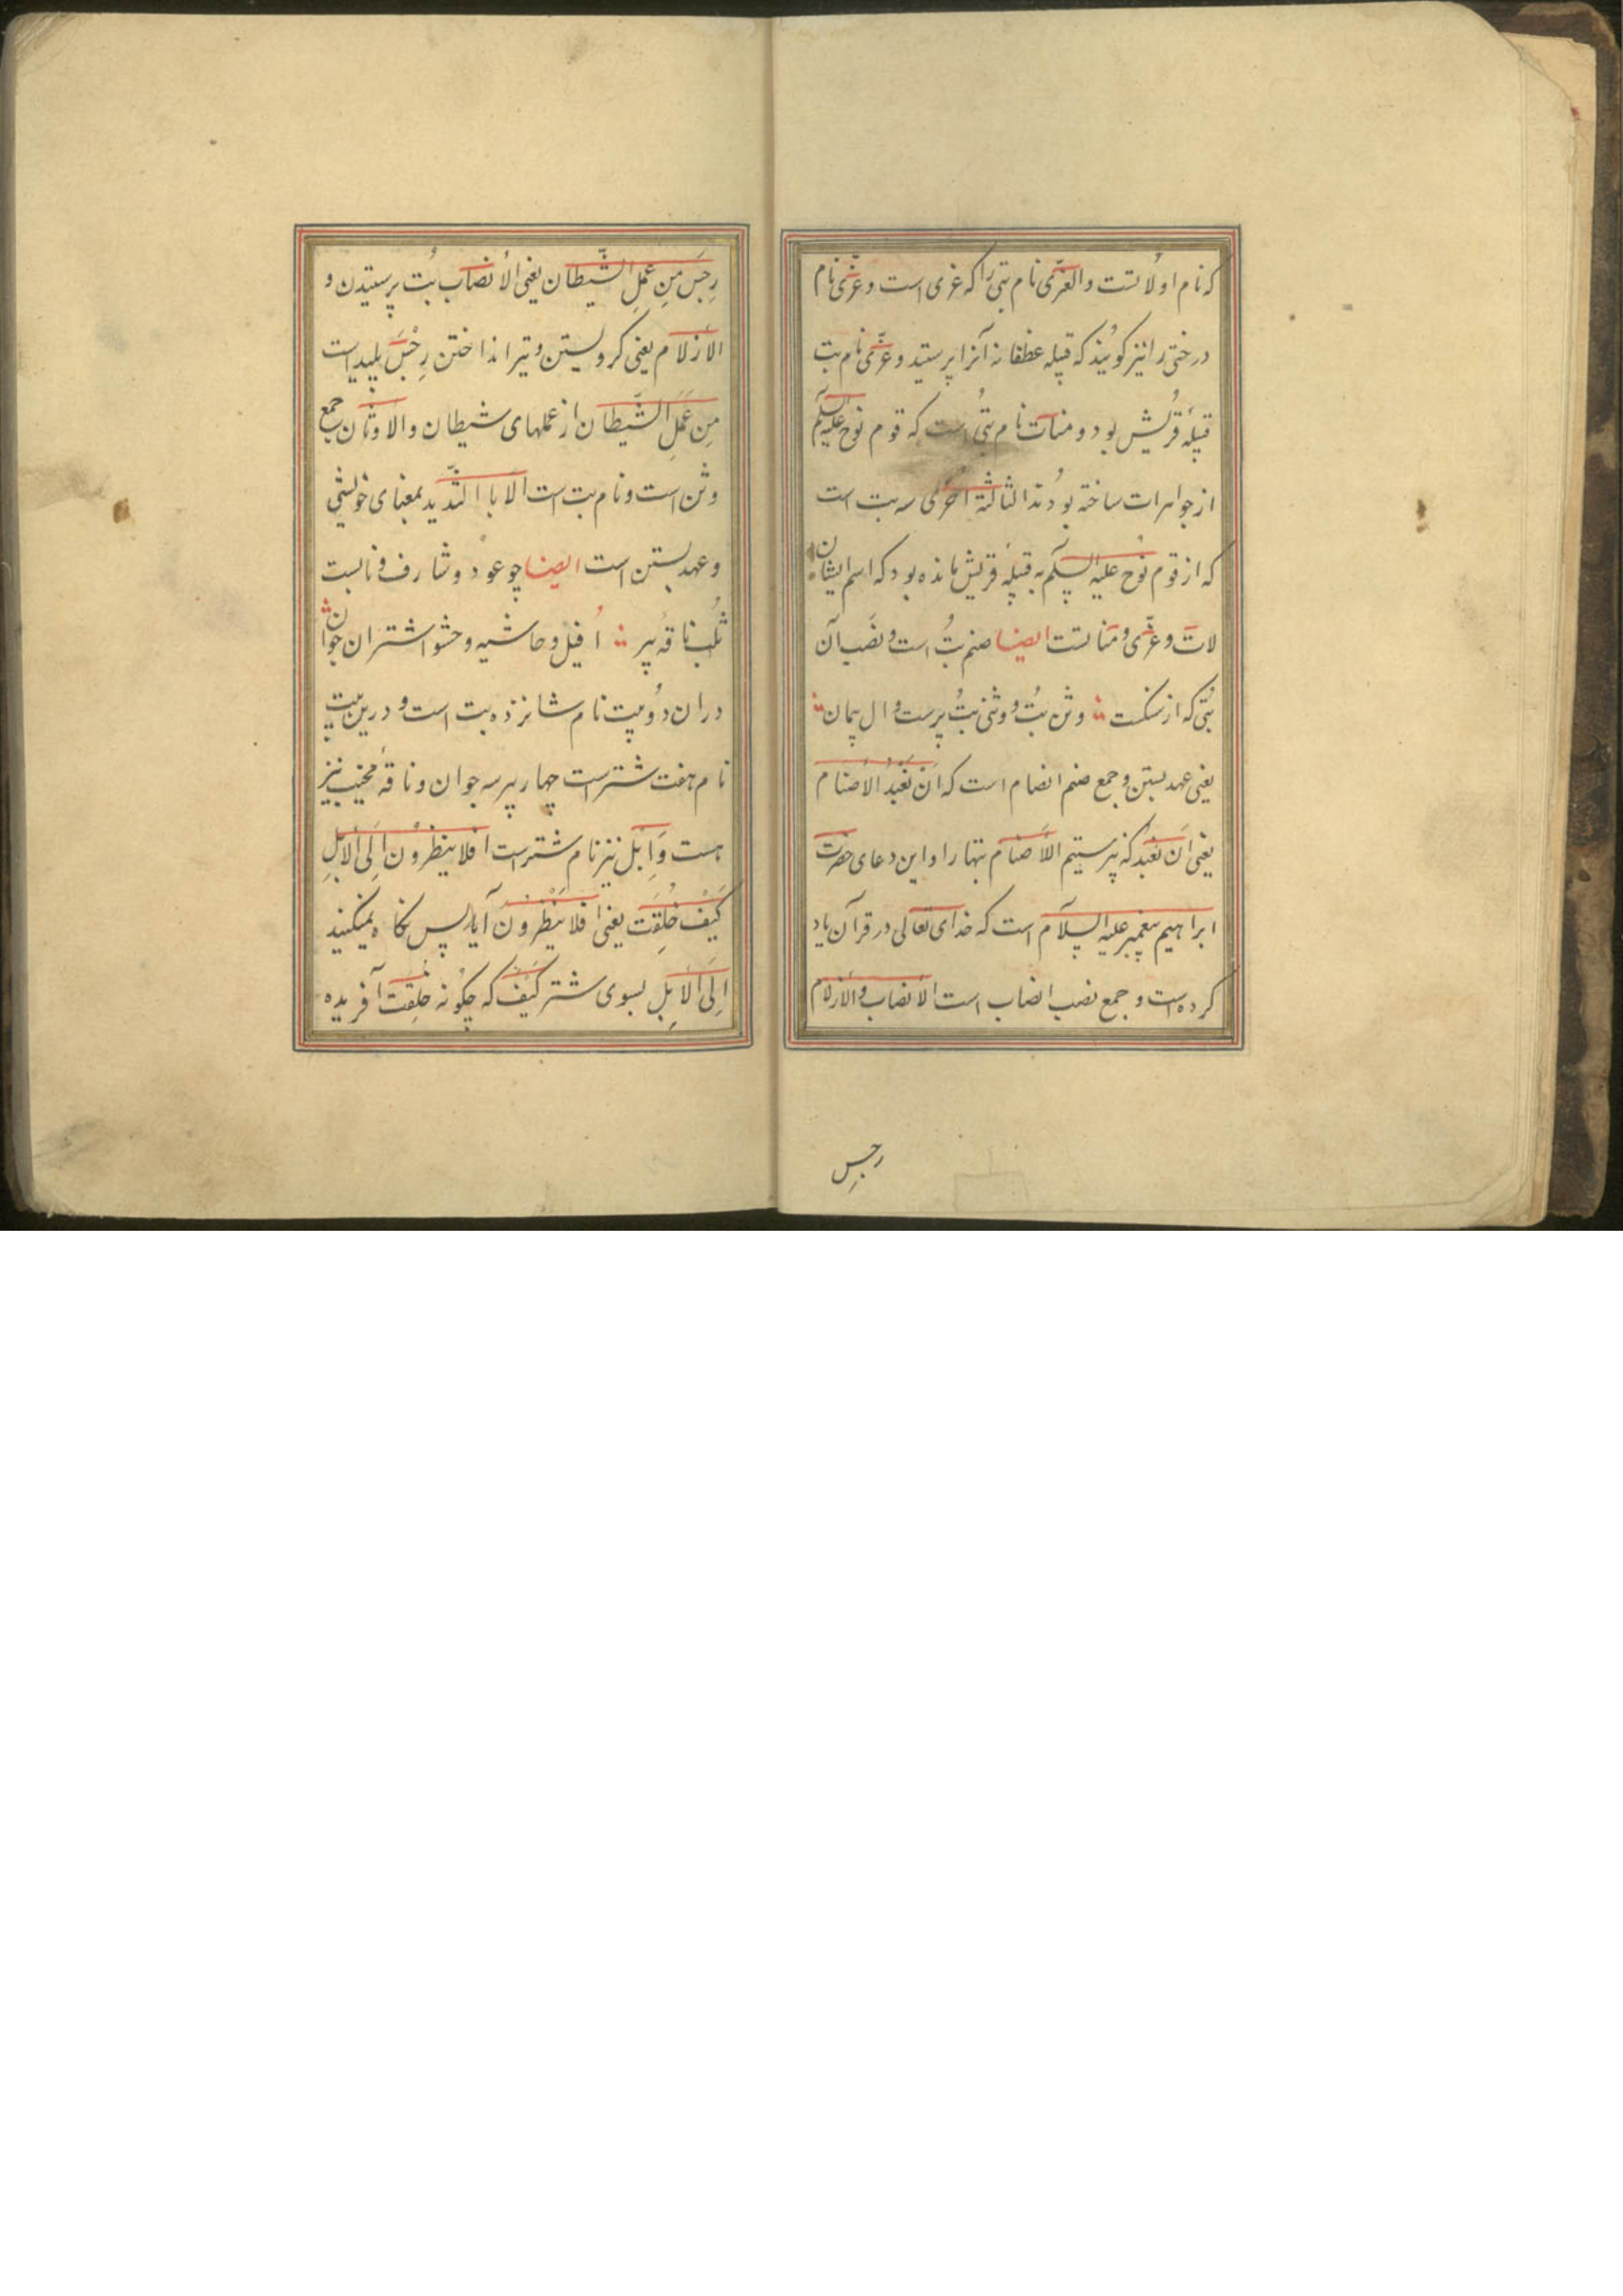 که نام او لاتست والعزّی نام بتی را که عزی است وعزّی نام
درختی را نیز کویند که قبیله غطفا نه آنرا پرستید وعزّی نام بت
قبیلهٔ قُریش بود ومنات نام بتی است که قوم نوح علیه السلم
از جواهرات ساخته بودند الثالثة اخری سه بت است
که از قوم نوح علیه السلم به قبیلهٔ قریش مانده بود که اسم ایشان
لات وعزّی ومناتست ایضا صنم بُت است ونصَب آن
بُتی که از سنکست وثن بُت ووثنی بُت پرست وال پیمان
یعنی عهد بستن وجمع صنم اصنام است که اَنْ نَعْبُدَ الاَصنام
یعنی اَن نَعْبُد که نپرستیم الاَصنام بتها را واین دعای حضرت
ابراهیم پیغمبر علیه السلام است که خدای تعالی در قرآن یاد
کرده است وجمع نصب انصاب است الاَنصاب والاَزلام
رجس
رِجسَ مِن عَمَلِ الشّیطان یعنی الاَنصاب بُت پرستیدن و
الاَزلام یعنی کرو بستن وتیر انداختن رِجْسَ پلید است
مِن عَمَلِ الشَّیطان از عملهای شیطان والاوثان جمع
وثن است ونام بت است الا با التّشدید بمعنای خویشی
وعهد بستن است ایضا چو عود وشارف وناب است
ثُلُب ناقهٔ پیر اُفیل وحاشیه وحشو اشتران جوان
در ان دُو بیت نام شانزده بت است ودرین بیت
نام هفت شتر است چهار پیر سه جوان وناقهٔ نجیب نیز
هست وَاِبل نیز نام شتر است افلا ینظرون اِلَی الاِبِلِ
کَیْفَ خُلِقَت یعنی اَفَلا یَنْظُرونَ آیا پس نکاه نمیکنید
اِلَی الاِبِل بسوی شتر کَیْفَ که چکونه خُلِقَت آفریده